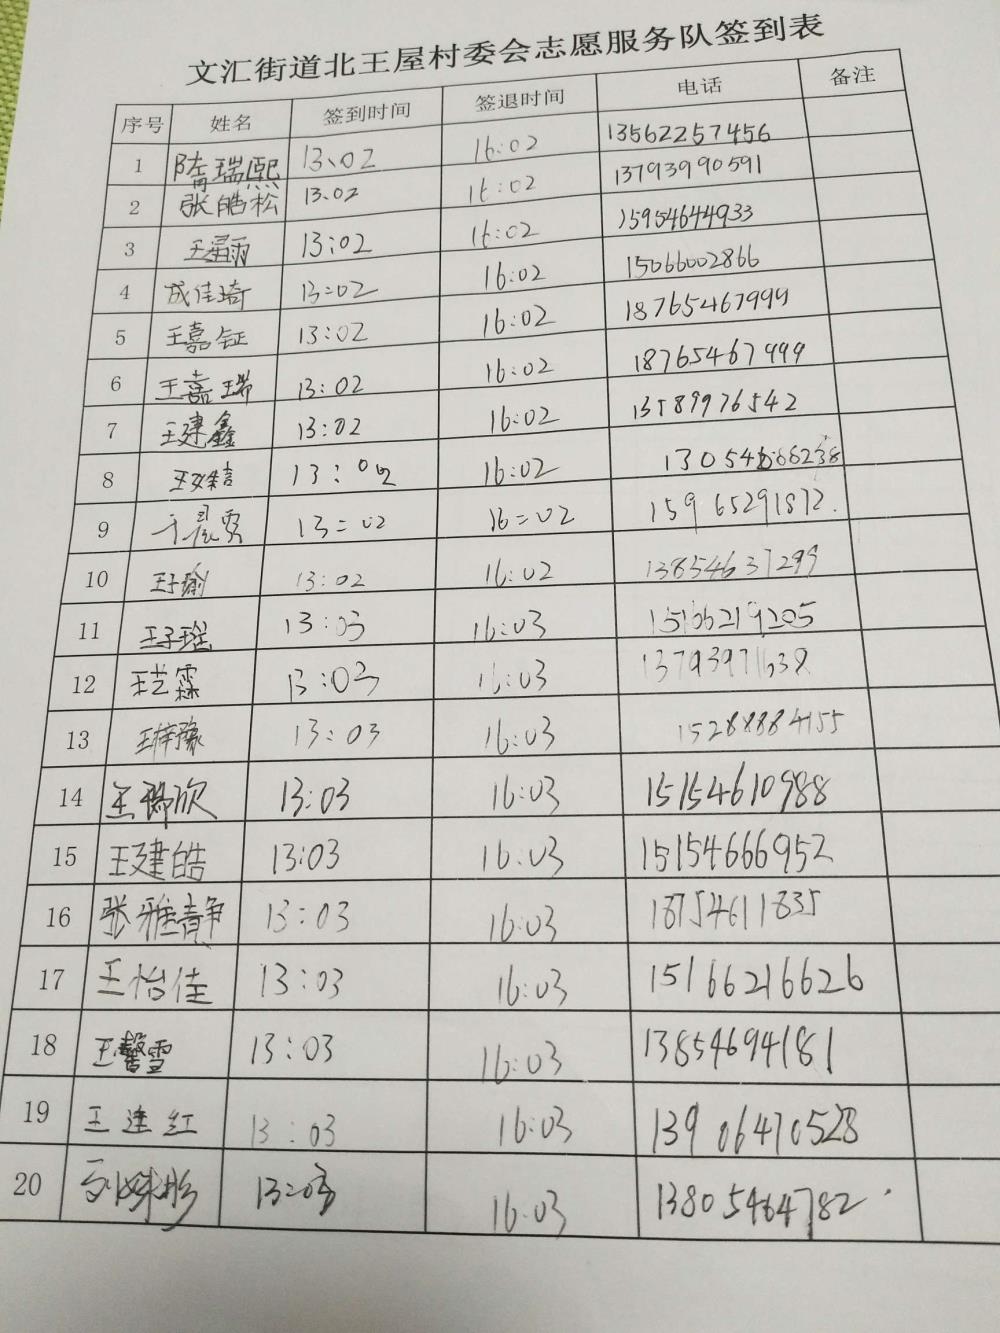 文汇街道北王屋村委会志愿服务队签到表
序号 姓名 签到时间 签退时间 电话 备注
1 隋瑞熙 13:02 16:02 13562257456
2 张皓松 13:02 16:02 13793990591
3 王星雨 13:02 16:02 15954644933
4 成佳琦 13:02 16:02 15066002866
5 王嘉钲 13:02 16:02 18765467999
6 王嘉瑞 13:02 16:02 18765467999
7 王建鑫 13:02 16:02 13589976542
8 13:02 16:02
9 13:02 16:02 15965291872.
10 王子瑜 13:02 16:02 13854637299
11 王子瑶 13:03 16:03 15166219205
12 王艺霖 13:03 16:03 13793971638
13 王梓豫 13:03 16:03 15288884155
14 王瑞欣 13:03 16:03 15154610988
15 王建皓 13:03 16:03 15154666952
16 张雅静 13:03 16:03 18754611835
17 王怡佳 13:03 16:03 15166216626
18 王馨雪 13:03 16:03 13854694181
19 王连红 13:03 16:03 13906470528
20 13:03 16:03 13805464782